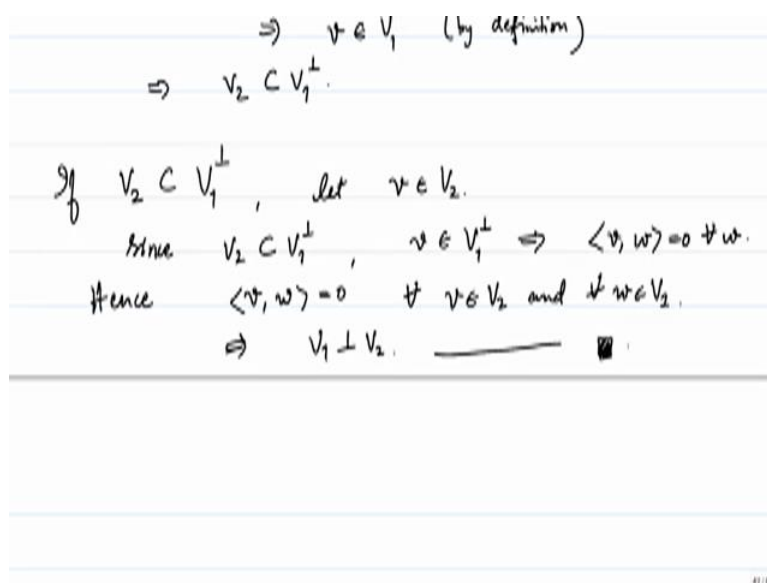 ⇒ v ∈ V₁ (by definition)
⇒ V₂ ⊂ V₁^⊥.
If V₂ ⊂ V₁^⊥, let v ∈ V₂.
Since V₂ ⊂ V₁^⊥, v ∈ V₁^⊥ ⇒ <v, w> = 0 ∀ w.
Hence <v, w> = 0 ∀ v ∈ V₂ and ∀ w ∈ V₂.
⇒ V₁ ⊥ V₂.